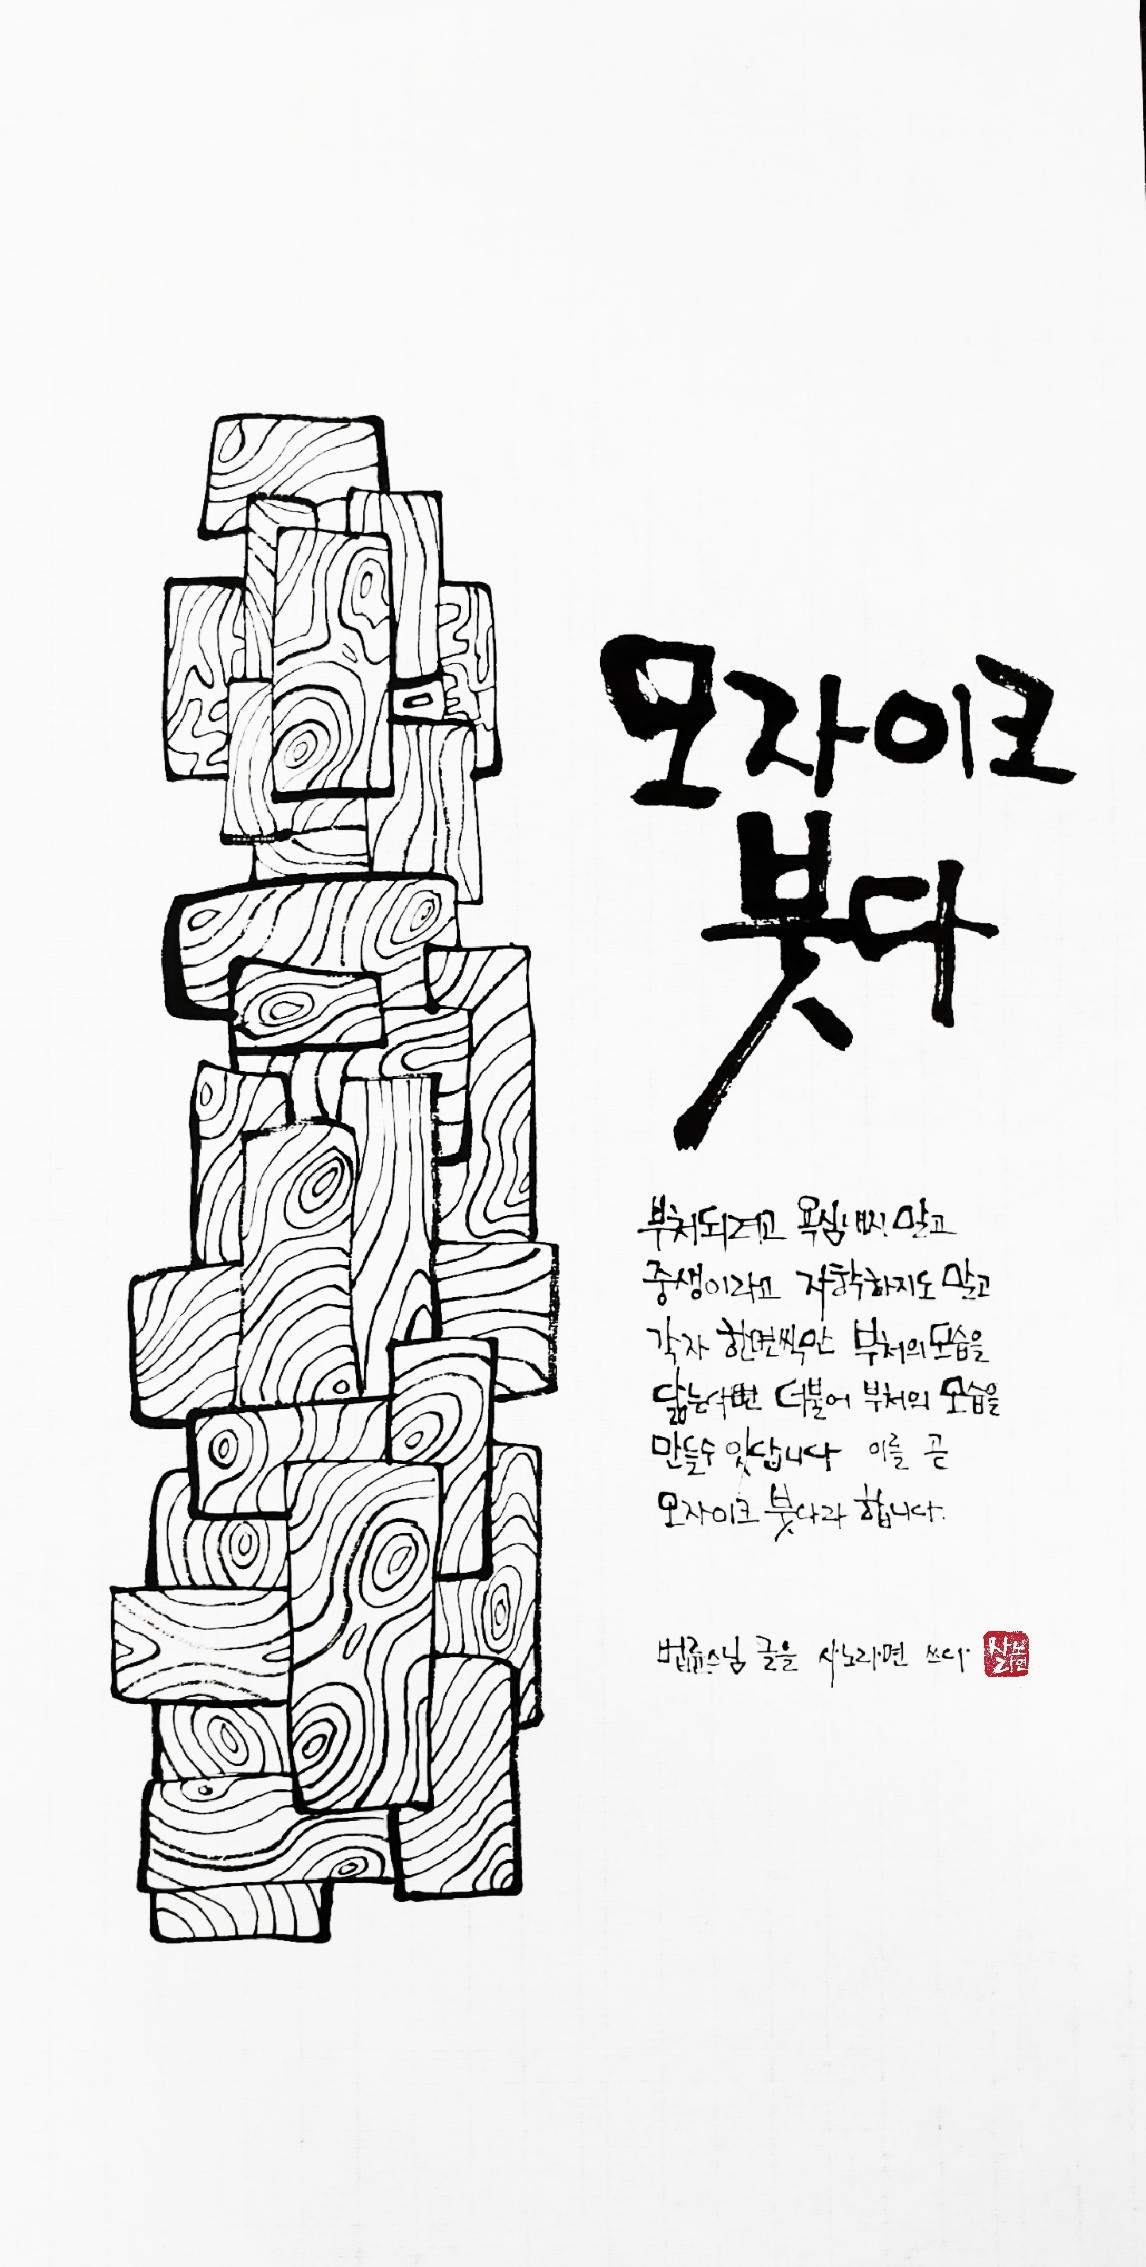 모자이크
붓다
부처되려고 욕심내지 말고
중생이라고 자학하지도 말고
각자 한면씩만 부처의 모습을
닮는다면 더불어 부처의 모습을
만들수 있답니다 이를 곧
모자이크 붓다라 합니다.
법륜스님 글을 사노라면 쓰다
사노라면